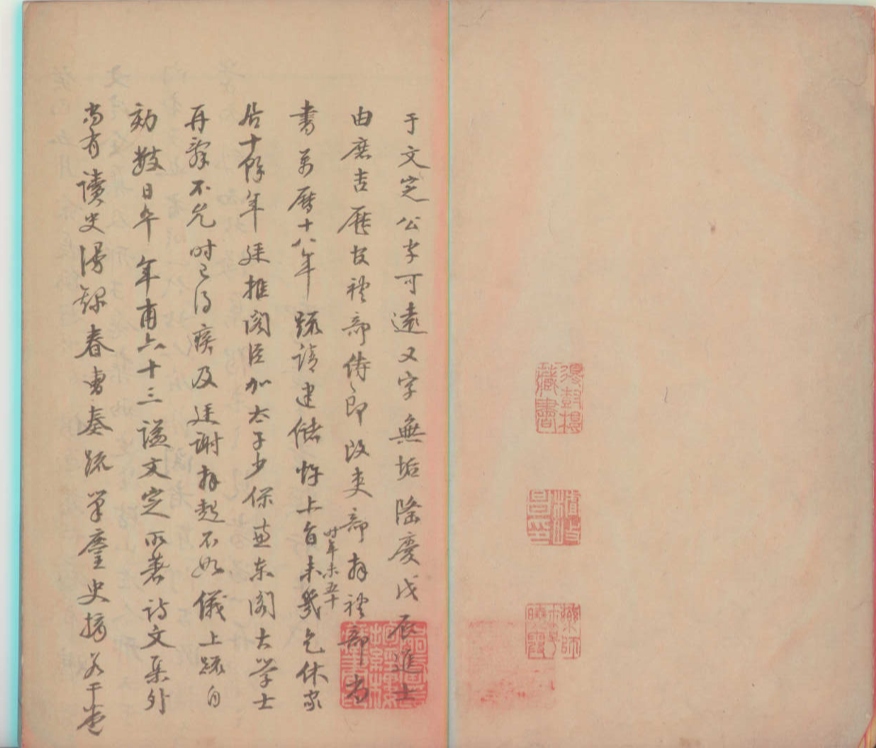 于文定公字可遠又字無垢隆慶戊辰進士
由庶吉歷故禮部侍郎改吏部拜禮部尚
書萬曆十八年疏請建儲忤上旨未幾乞休家
時年未五十
居十餘年廷推閣臣加太子少保兼東閣大學士
再辭不允時已得疾及廷謝拜起不如儀上疏自
劾數日卒年甫六十三諡文定所著詩文集外
尚有讀史漫錄春曹奏疏筆麈史摘若干卷
藏書